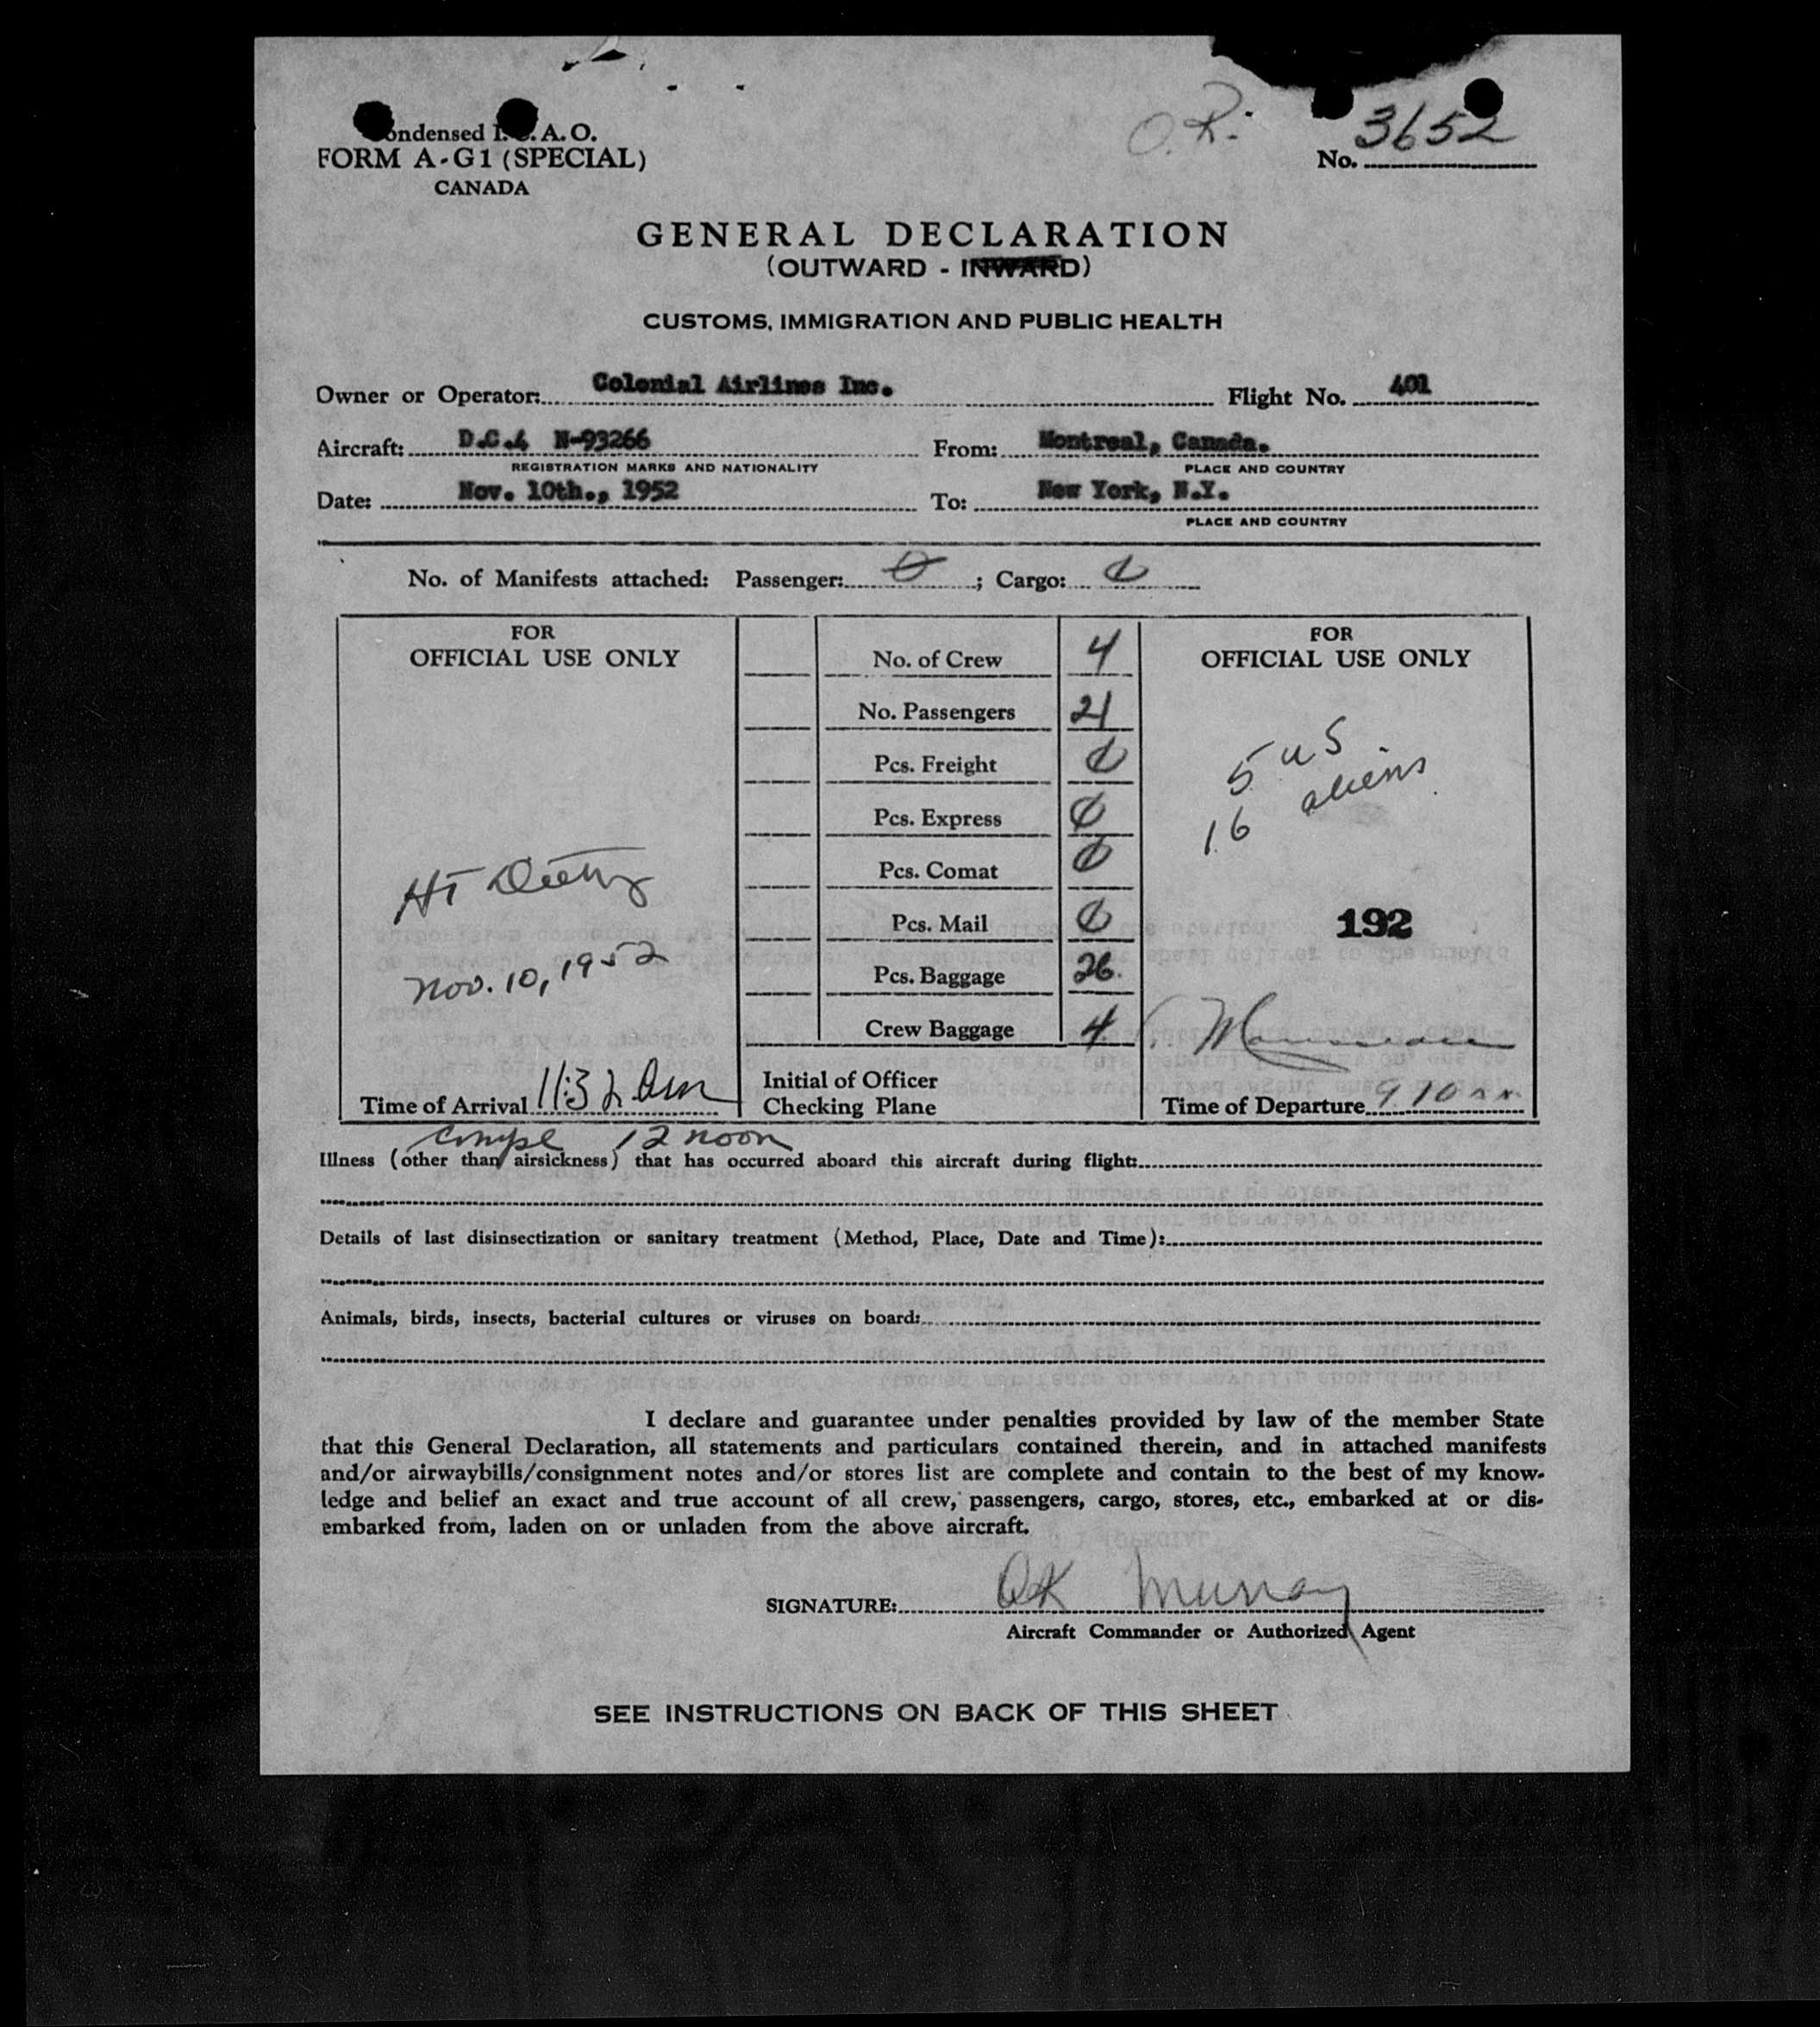 O.R.
ondensed I. . A. O.
No. 3652
FORM A-G1 (SPECIAL)
CANADA
GENERAL DECLARATION
(OUTWARD - INWARD)
CUSTOMS, IMMIGRATION AND PUBLIC HEALTH
Owner or Operator: Colonial Airlines Inc. Flight No. 401
Aircraft: D.C.4 N-93266 From: Montreal, Canada.
REGISTRATION MARKS AND NATIONALITY PLACE AND COUNTRY
Date: Nov. 10th., 1952 To: New York, N.Y.
PLACE AND COUNTRY
No. of Manifests attached: Passenger: 0 ; Cargo: 0
FOR
OFFICIAL USE ONLY
HT
Nov. 10, 1952
Time of Arrival 11:32 am
No. of Crew 4
No. Passengers 21
Pcs. Freight 0
Pcs. Express 0
Pcs. Comat 0
Pcs. Mail 0
Pcs. Baggage 26.
Crew Baggage 4.
Initial of Officer
Checking Plane
FOR
OFFICIAL USE ONLY
5 US
16 aliens
192
Time of Departure 9.10
Compl 12 noon
Illness (other than airsickness) that has occurred aboard this aircraft during flight:
Details of last disinsectization or sanitary treatment (Method, Place, Date and Time):
Animals, birds, insects, bacterial cultures or viruses on board:
I declare and guarantee under penalties provided by law of the member State
that this General Declaration, all statements and particulars contained therein, and in attached manifests
and/or airwaybills/consignment notes and/or stores list are complete and contain to the best of my know-
ledge and belief an exact and true account of all crew, passengers, cargo, stores, etc., embarked at or dis-
embarked from, laden on or unladen from the above aircraft.
SIGNATURE: Murray
Aircraft Commander or Authorized Agent
SEE INSTRUCTIONS ON BACK OF THIS SHEET